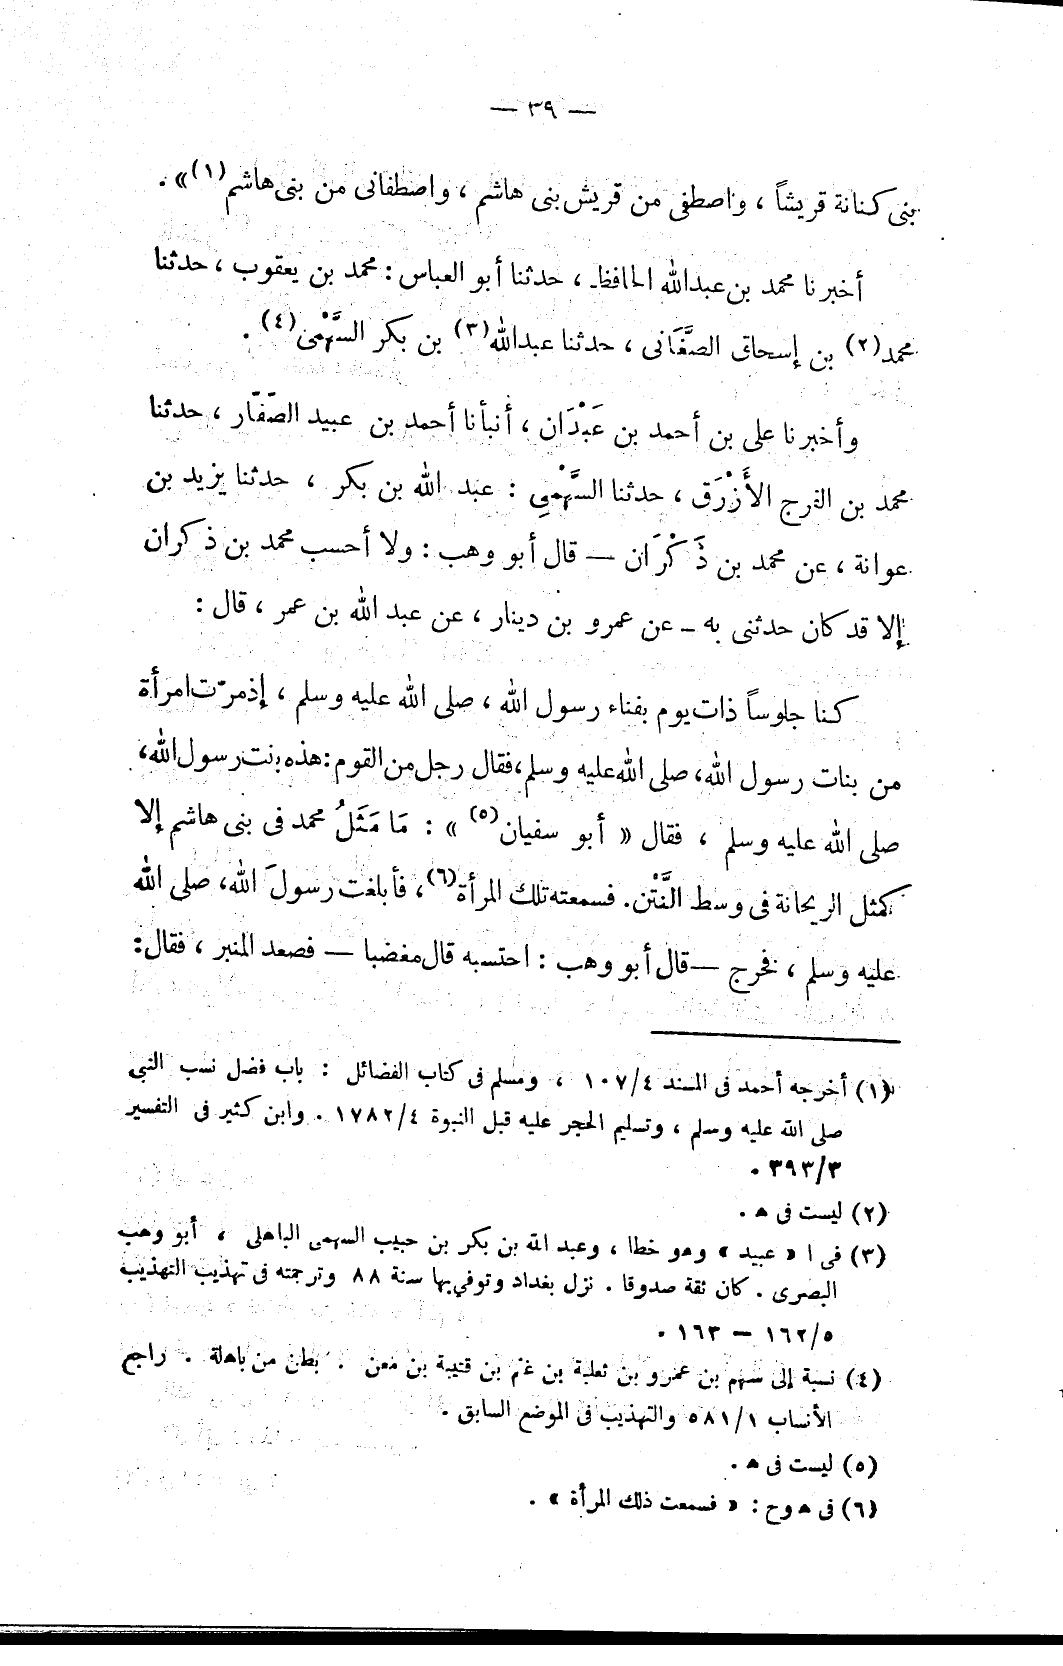 — ٣٩ —
بنى كنانة قريشاً ، واصطفى من قريش بنى هاشم ، واصطفانى من بنى هاشم(١)» .
أخبرنا محمد بن عبدالله الحافظ ، حدثنا أبو العباس : محمد بن يعقوب ، حدثنا
محمد(٢) بن إسحاق الصَّغَانى ، حدثنا عبدالله(٣) بن بكر السَّهْمى(٤) .
وأخبرنا على بن أحمد بن عَبْدَان ، أنبأنا أحمد بن عبيد الصّفّار ، حدثنا
محمد بن الفرج الأَزْرَق ، حدثنا السَّهْمِى : عبد الله بن بكر ، حدثنا يزيد بن
عوانة ، عن محمد بن ذَكْرَان — قال أبو وهب : ولا أحسب محمد بن ذكران
إلا قد كان حدثنى به — عن عمرو بن دينار ، عن عبد الله بن عمر ، قال :
كنا جلوساً ذات يوم بفناء رسول الله ، صلى الله عليه وسلم ، إذ مرّت امرأة
من بنات رسول الله، صلى الله عليه وسلم، فقال رجل من القوم: هذه بنت رسول الله،
صلى الله عليه وسلم ، فقال « أبو سفيان(٥) » : مَا مَثَلُ محمد فى بنى هاشم إلا
كمثل الريحانة فى وسط النَّتْن. فسمعته تلك المرأة(٦)، فأبلغت رسولَ الله، صلى الله
عليه وسلم ، فخرج — قال أبو وهب : احتسبه قال مغضبا — فصعد المنبر ، فقال:
(١) أخرجه أحمد فى المسند ١٠٧/٤ ، ومسلم فى كتاب الفضائل : باب فضل نسب النبى
صلى الله عليه وسلم ، وتسليم الحجر عليه قبل النبوة ١٧٨٢/٤ . وابن كثير فى التفسير
٣٩٣/٣ .
(٢) ليست فى ھ .
(٣) فى ا « عبيد » وهو خطا ، وعبد الله بن بكر بن حبيب السهمى الباهلى ، أبو وهب
البصرى . كان ثقة صدوقا . نزل بغداد وتوفي بها سنة ٨٨ وترجمته فى تهذيب التهذيب
١٦٢/٥ — ١٦٣ .
(٤) نسبة إلى سهم بن عمرو بن ثعلبة بن غنم بن قتيبة بن معن . بطن من باهلة . راجع
الأنساب ٥٨١/١ والتهذيب فى الموضع السابق .
(٥) ليست فى ھ .
(٦) فى ھ وح : « فسمعت ذلك المرأة » .